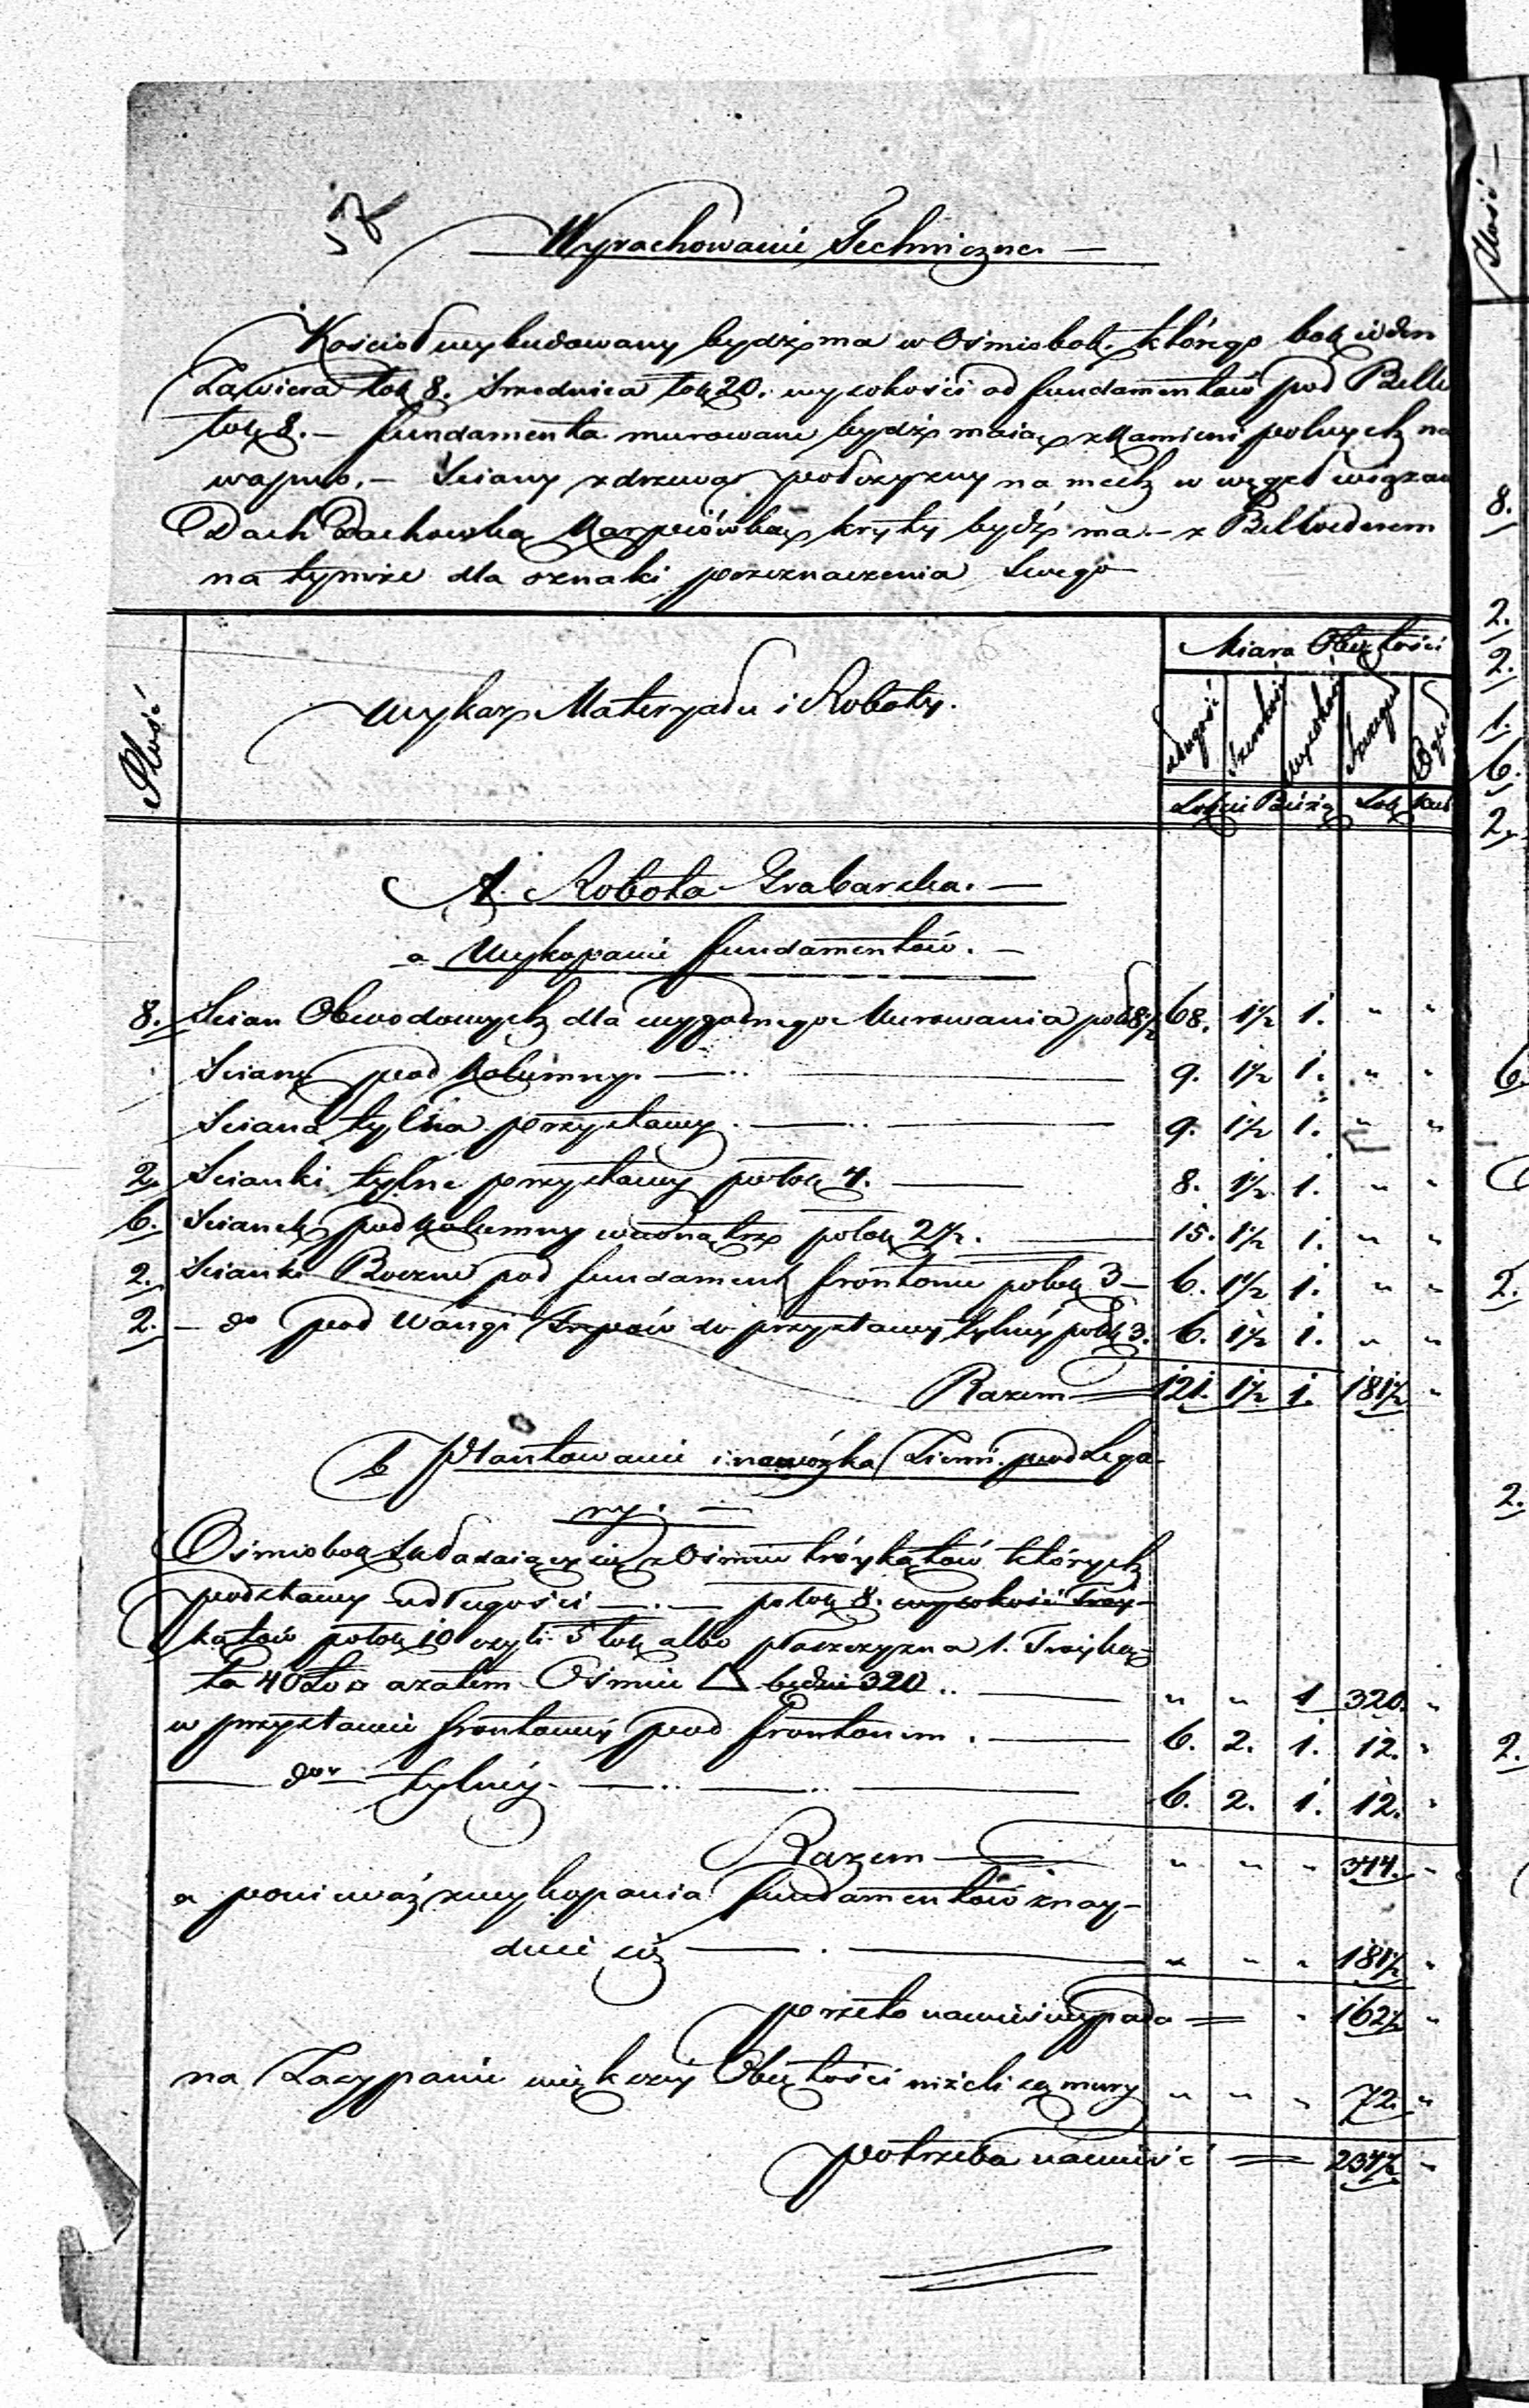 Wyrachowanie Techniczne. —
Kościoł wybudowany bydź ma w Ośmiobok, którego bok ieden
Zawiera łok 8. Srzednica łok 20. wysokości od fundamentów pod Belw
łok 8. — fundamenta murowane bydź maią z Kamieni polnych na
wapno, — Sciany z drzewa na mech w węgeł wiązan
Dach Dachówką Karpiówką kryty bydź ma — z Belwederem
na tymże dla oznaki przeznaczenia swego —
Ilość
Wykaz Materyału i Roboty.
Miara Obiętości
długość Szerokość wysokość Szczegół Ogół
Łokcie Bieżą Łok Kub
A. Robota Grabarska. —
a Wykopanie fundamentów. —
8. Scian Obwodowych dla wygodnego Murowania po 8½ 68. 1½ 1. " "
Sciana pod Kolumny. — 9. 1½ 1. " "
Sciana tylna przystawy. — 9. 1½ 1. " "
2. Scianki tylne przystawy po łok 4. — 8. 1½ 1. " "
6. Scianek pod kolumny wewnątrz po łok 2½. — 15. 1½ 1. " "
2. Scianki Boczne pod fundament frontonu po łok 3 — 6. 1½ 1. " "
2. — do pod Wangi Stopniów do przystawy tylney po łok 3. 6. 1½ 1. " "
Razem = 121. 1½ 1. 181½ "
b Plantowanie i nawózka Ziemi pod Lega-
ry. —
Ośmiobok składaiący się z Ośmiu tróykątów których
podstawy długości — . — po łok 8. wysokość Tróy-
kątów po łok 10 czyli 5 łok albo płaszczyzna 1. Tróyką-
ta 40 Ło □ a zatem Ośmiu △ będzie 320 .. — " " 1 320. "
w przystawie frontowey pod frontonem . — 6. 2. 1. 12. "
— do — tylney. — 6. 2. 1. 12. "
Razem — " " " 344. "
a ponieważ z wykopania fundamentów znay-
duie się — . — " " " 181½ "
przeto nawieść wypada = " 162½ "
na Zasypanie większey Obiętości niżeli są mury " " " 72. "
potrzeba nawieść = 234½ "
Ilość —
8.
2.
2.
1.
6.
2.
6.
2.
2.
2.